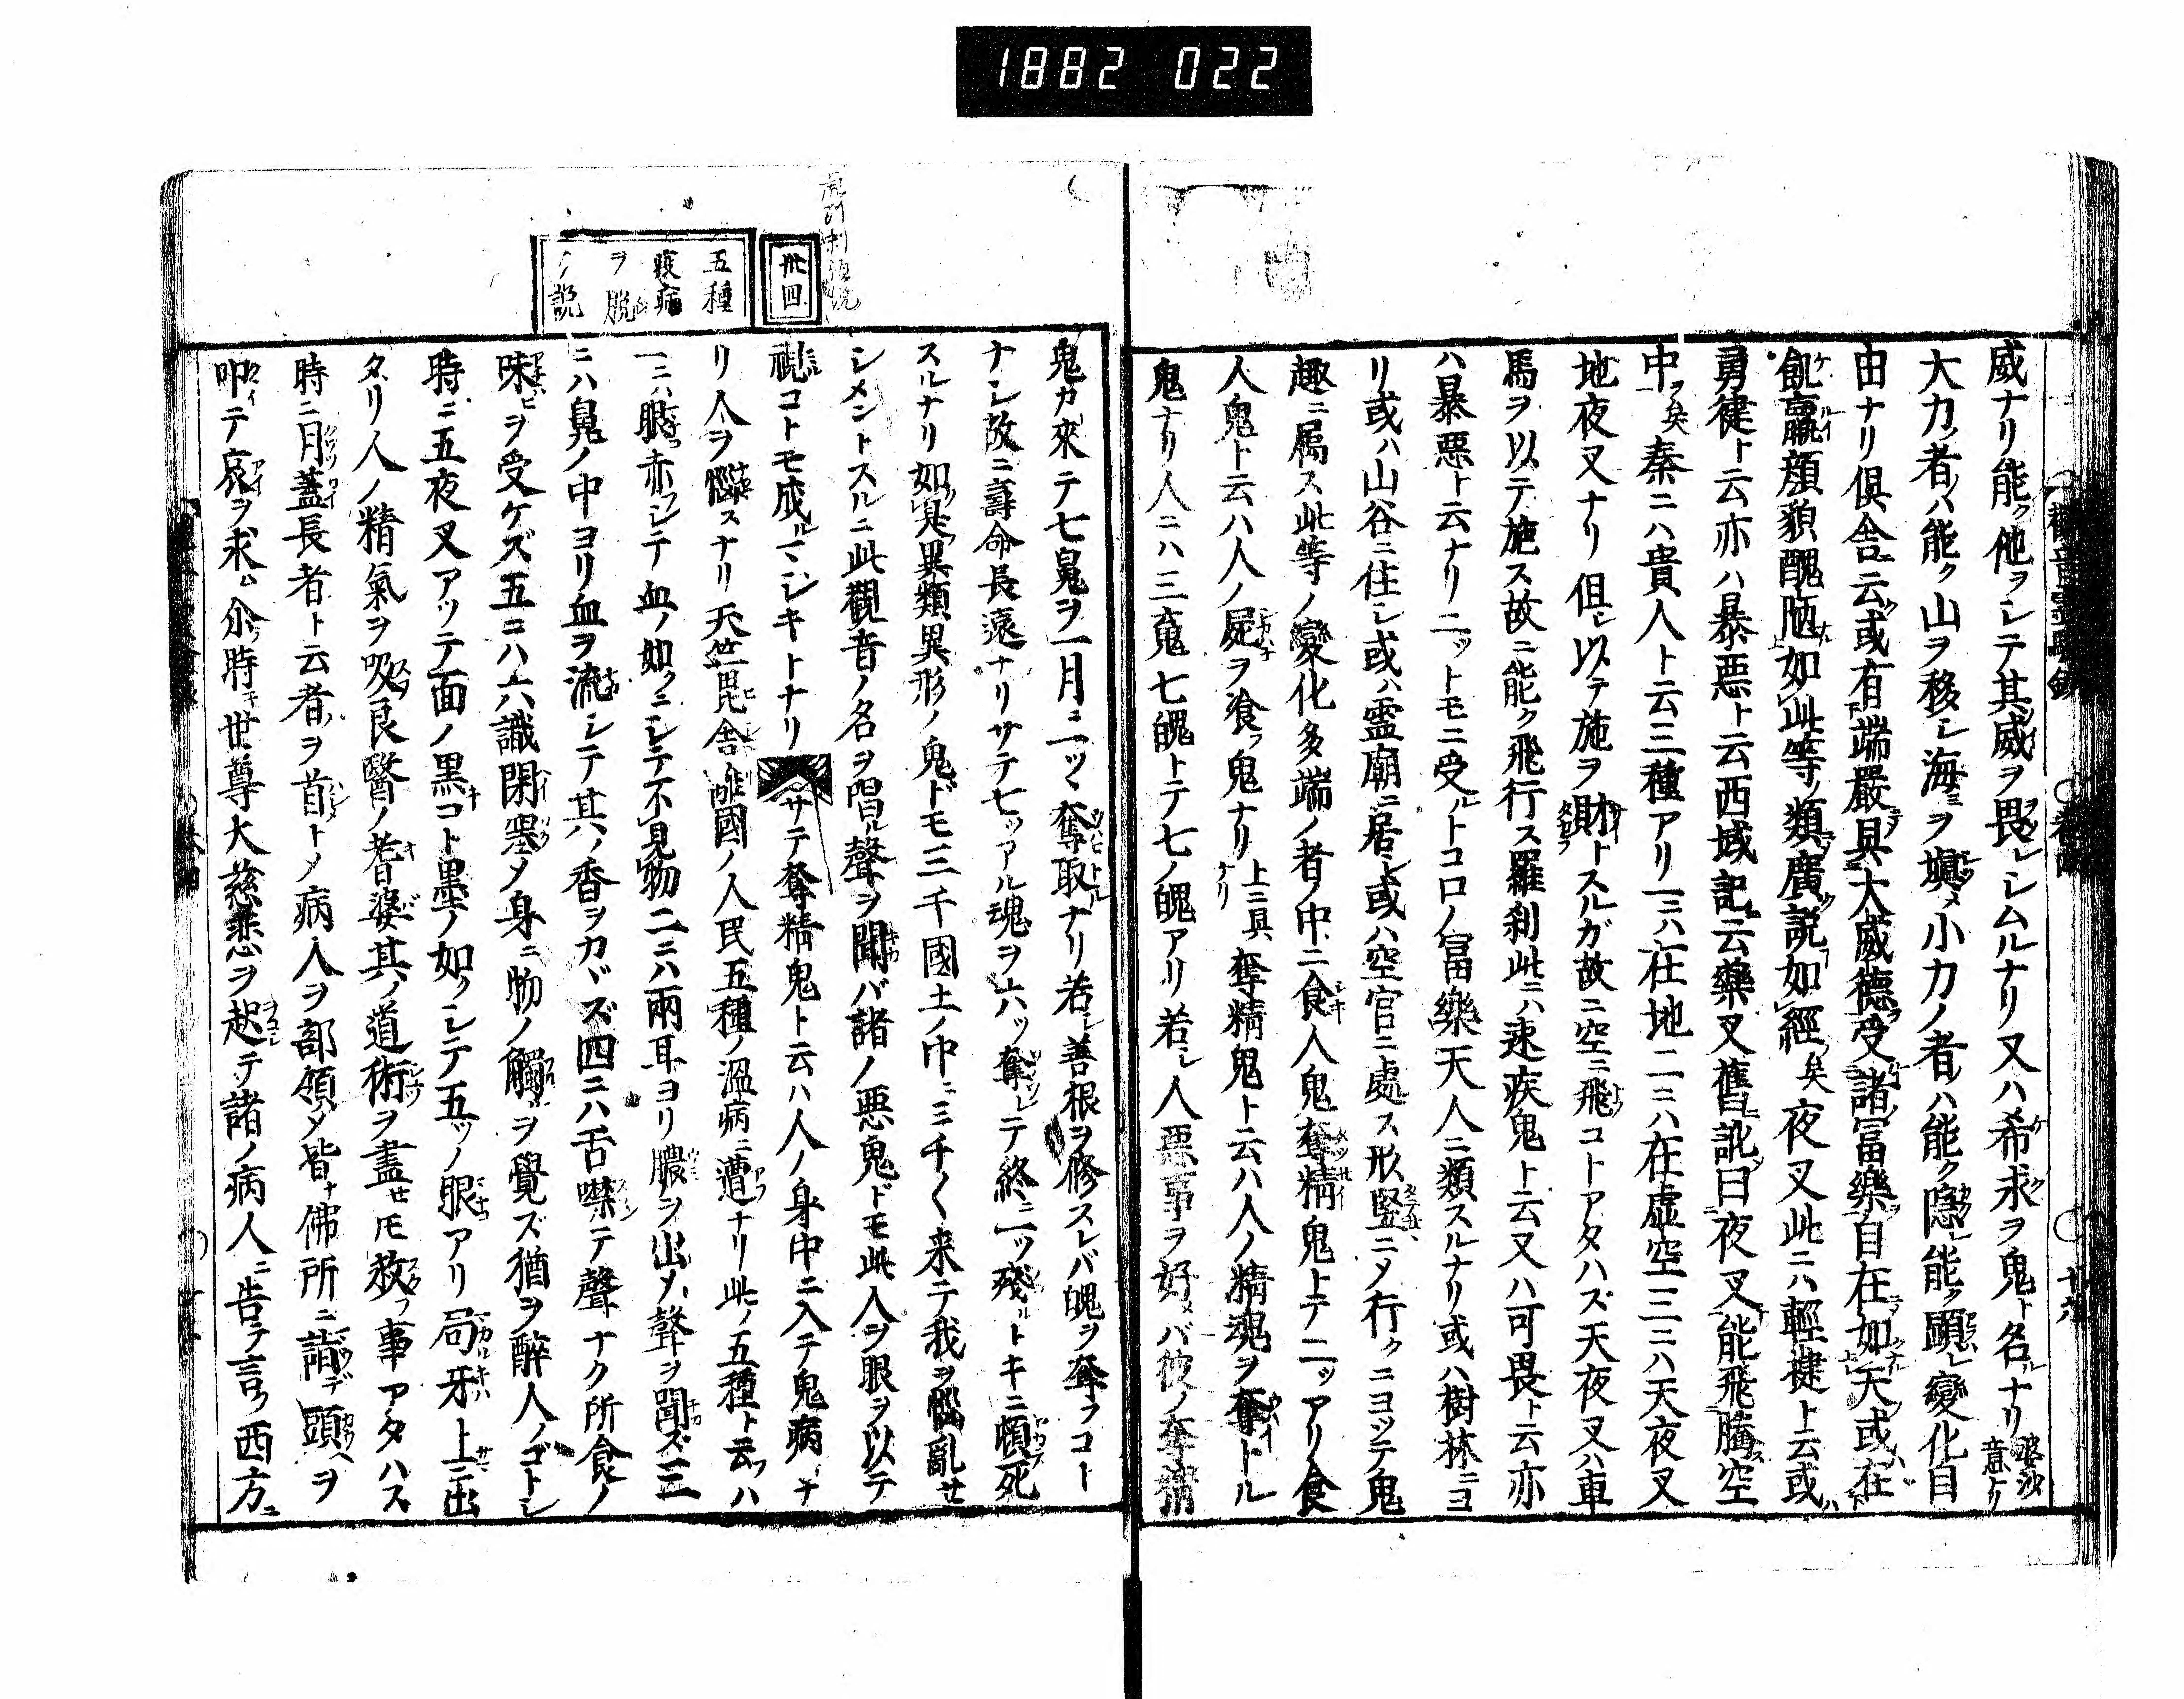 1882 022
威ナリ能ク他ヲシテ其威ヲ畏レシムルナリ又ハ希求ヲ鬼ト名ルナリ婆沙意ナリ
大力ノ者ハ能ク山ヲ移シ海ヲ塡メ小力ノ者ハ能ク隱レ能ク顕レ變化自
由ナリ倶舎ニ云或有端嚴具大威德受諸冨樂自在如天或在
飢羸顔貌醜陋如此等類廣說如經矣夜叉此ニハ輕揵ト云或ハ
勇健ト云亦ハ暴悪ト云西域記云藥叉舊訛曰夜叉能飛騰空
中矣秦ニハ貴人ト云三種アリ一ニハ在地二ニハ在虚空三ニハ天夜叉
地夜叉ナリ但シ以テ施ヲ財トスルガ故ニ空ニ飛コトアタハズ天夜叉ハ車
馬ヲ以テ施ス故ニ能ク飛行ス羅刹此ニハ速疾鬼ト云又ハ可畏ト云亦
ハ暴悪ト云ナリ二ットモニ受ルトコロノ冨樂天人ニ類スルナリ或ハ樹林ニヨ
リ或ハ山谷ニ住シ或ハ霊廟ニ居シ或ハ空宮ニ處ス形竪ニメ行クニヨッテ鬼
趣ニ属ス此等ノ變化多端ノ者ノ中ニ食人鬼奪精鬼トテ二ッアリ食
人鬼ト云ハ人ノ屍ヲ飡フ鬼ナリ上ニ具ナリ奪精鬼ト云ハ人ノ精魂ヲ奪トル
鬼ナリ人ニハ三魂七魄トテ七ノ魄アリ若シ人悪事ヲ好メバ彼ノ奪精
卅四
五種
疫病
ヲ脱
ノ説
鬼カ來テ七魄ヲ一月ニ一ッヽ奪取ナリ若シ善根ヲ修スレバ魄ヲ奪フコト
ナシ故ニ壽命長遠ナリサテ七ッアル魂ヲ六ッ奪レテ終ニ一ッ殘ルトキニ頓死
スルナリ如是異類異形ノ鬼ドモ三千國土ノ中ニミチ〱來テ我ヲ惱亂せ
シメントスルニ此觀音ノ名ヲ唱ル聲ヲ聞バ諸ノ悪鬼ドモ此人ヲ眼ヲ以テ
視コトモ成ルマシキトナリサテ奪精鬼ト云ハ人ノ身中ニ入テ鬼病ナ
リ人ヲ惱スナリ天竺毘舎離國ノ人民五種ノ温病ニ遭ナリ此ノ五種ト云ハ
一ニハ眼赤シテ血ノ如クニシテ不見物二ニハ兩耳ヨリ膿ヲ出メ聲ヲ聞ズ三
ニハ鼻ノ中ヨリ血ヲ流シテ其ノ香ヲカヾズ四ニハ舌噤テ聲ナク所食ノ
味ヒヲ受ケズ五ニハ六識閉塞メ身ニ物ノ觸ヲ覺ズ猶ヲ醉人ノゴトシ
時ニ五夜叉アッテ面ノ黒コト墨ノ如クシテ五ッノ眼アリ鉤牙上ニ出
タリ人ノ精氣ヲ吸良醫ノ耆婆其ノ道術ヲ盡セ𪜈救フ事アタハス
時ニ月蓋長者ト云者ヲ首トメ病人ヲ部領メ皆ナ佛所ニ詣デ頭ヲ
叩テ哀ヲ求ム尒時世尊大慈悲ヲ起テ諸ノ病人ニ告テ言ク西方ニ